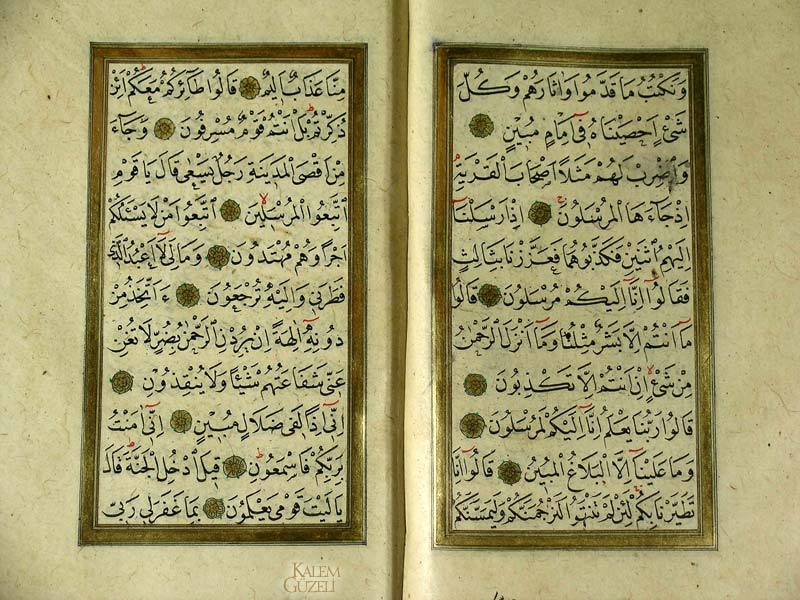 وَنَكْتُبُ مَا قَدَّمُوا وَاٰثَارَهُمْ وَكُلَّ
شَىْءٍ اَحْصَيْنَاهُ فٖٓى اِمَامٍ مُبٖينٍ
وَاضْرِبْ لَهُمْ مَثَلًا اَصْحَابَ الْقَرْيَةِ
اِذْ جَٓاءَهَا الْمُرْسَلُونَ اِذْ اَرْسَلْنَٓا
اِلَيْهِمُ اثْنَيْنِ فَكَذَّبُوهُمَا فَعَزَّزْنَا بِثَالِثٍ
فَقَالُٓوا اِنَّٓا اِلَيْكُمْ مُرْسَلُونَ قَالُوا
مَٓا اَنْتُمْ اِلَّا بَشَرٌ مِثْلُنَا وَمَٓا اَنْزَلَ الرَّحْمٰنُ
مِنْ شَىْءٍ اِنْ اَنْتُمْ اِلَّا تَكْذِبُونَ
قَالُوا رَبُّنَا يَعْلَمُ اِنَّٓا اِلَيْكُمْ لَمُرْسَلُونَ
وَمَا عَلَيْنَٓا اِلَّا الْبَلَاغُ الْمُبٖينُ قَالُٓوا اِنَّا
تَطَيَّرْنَا بِكُمْ لَئِنْ لَمْ تَنْتَهُوا لَنَرْجُمَنَّكُمْ وَلَيَمَسَّنَّكُمْ
مِنَّا عَذَابٌ اَلٖيمٌ قَالُوا طَٓائِرُكُمْ مَعَكُمْ اَئِنْ
ذُكِّرْتُمْ بَلْ اَنْتُمْ قَوْمٌ مُسْرِفُونَ وَجَٓاءَ
مِنْ اَقْصَى الْمَدٖينَةِ رَجُلٌ يَسْعٰى قَالَ يَا قَوْمِ
اتَّبِعُوا الْمُرْسَلٖينَ اِتَّبِعُوا مَنْ لَا يَسْـَٔلُكُمْ
اَجْرًا وَهُمْ مُهْتَدُونَ وَمَا لِىَ لَٓا اَعْبُدُ الَّذٖى
فَطَرَنٖى وَاِلَيْهِ تُرْجَعُونَ ءَاَتَّخِذُ مِنْ
دُونِهٖٓ اٰلِهَةً اِنْ يُرِدْنِ الرَّحْمٰنُ بِضُرٍّ لَا تُغْنِ
عَنّٖى شَفَاعَتُهُمْ شَيْـًٔا وَلَا يُنْقِذُونِ
اِنّٖٓى اِذًا لَفٖى ضَلَالٍ مُبٖينٍ اِنّٖٓى اٰمَنْتُ
بِرَبِّكُمْ فَاسْمَعُونِ قٖيلَ ادْخُلِ الْجَنَّةَ قَالَ
يَا لَيْتَ قَوْمٖى يَعْلَمُونَ بِمَا غَفَرَ لٖى رَبّٖى
KALEM
GÜZELİ